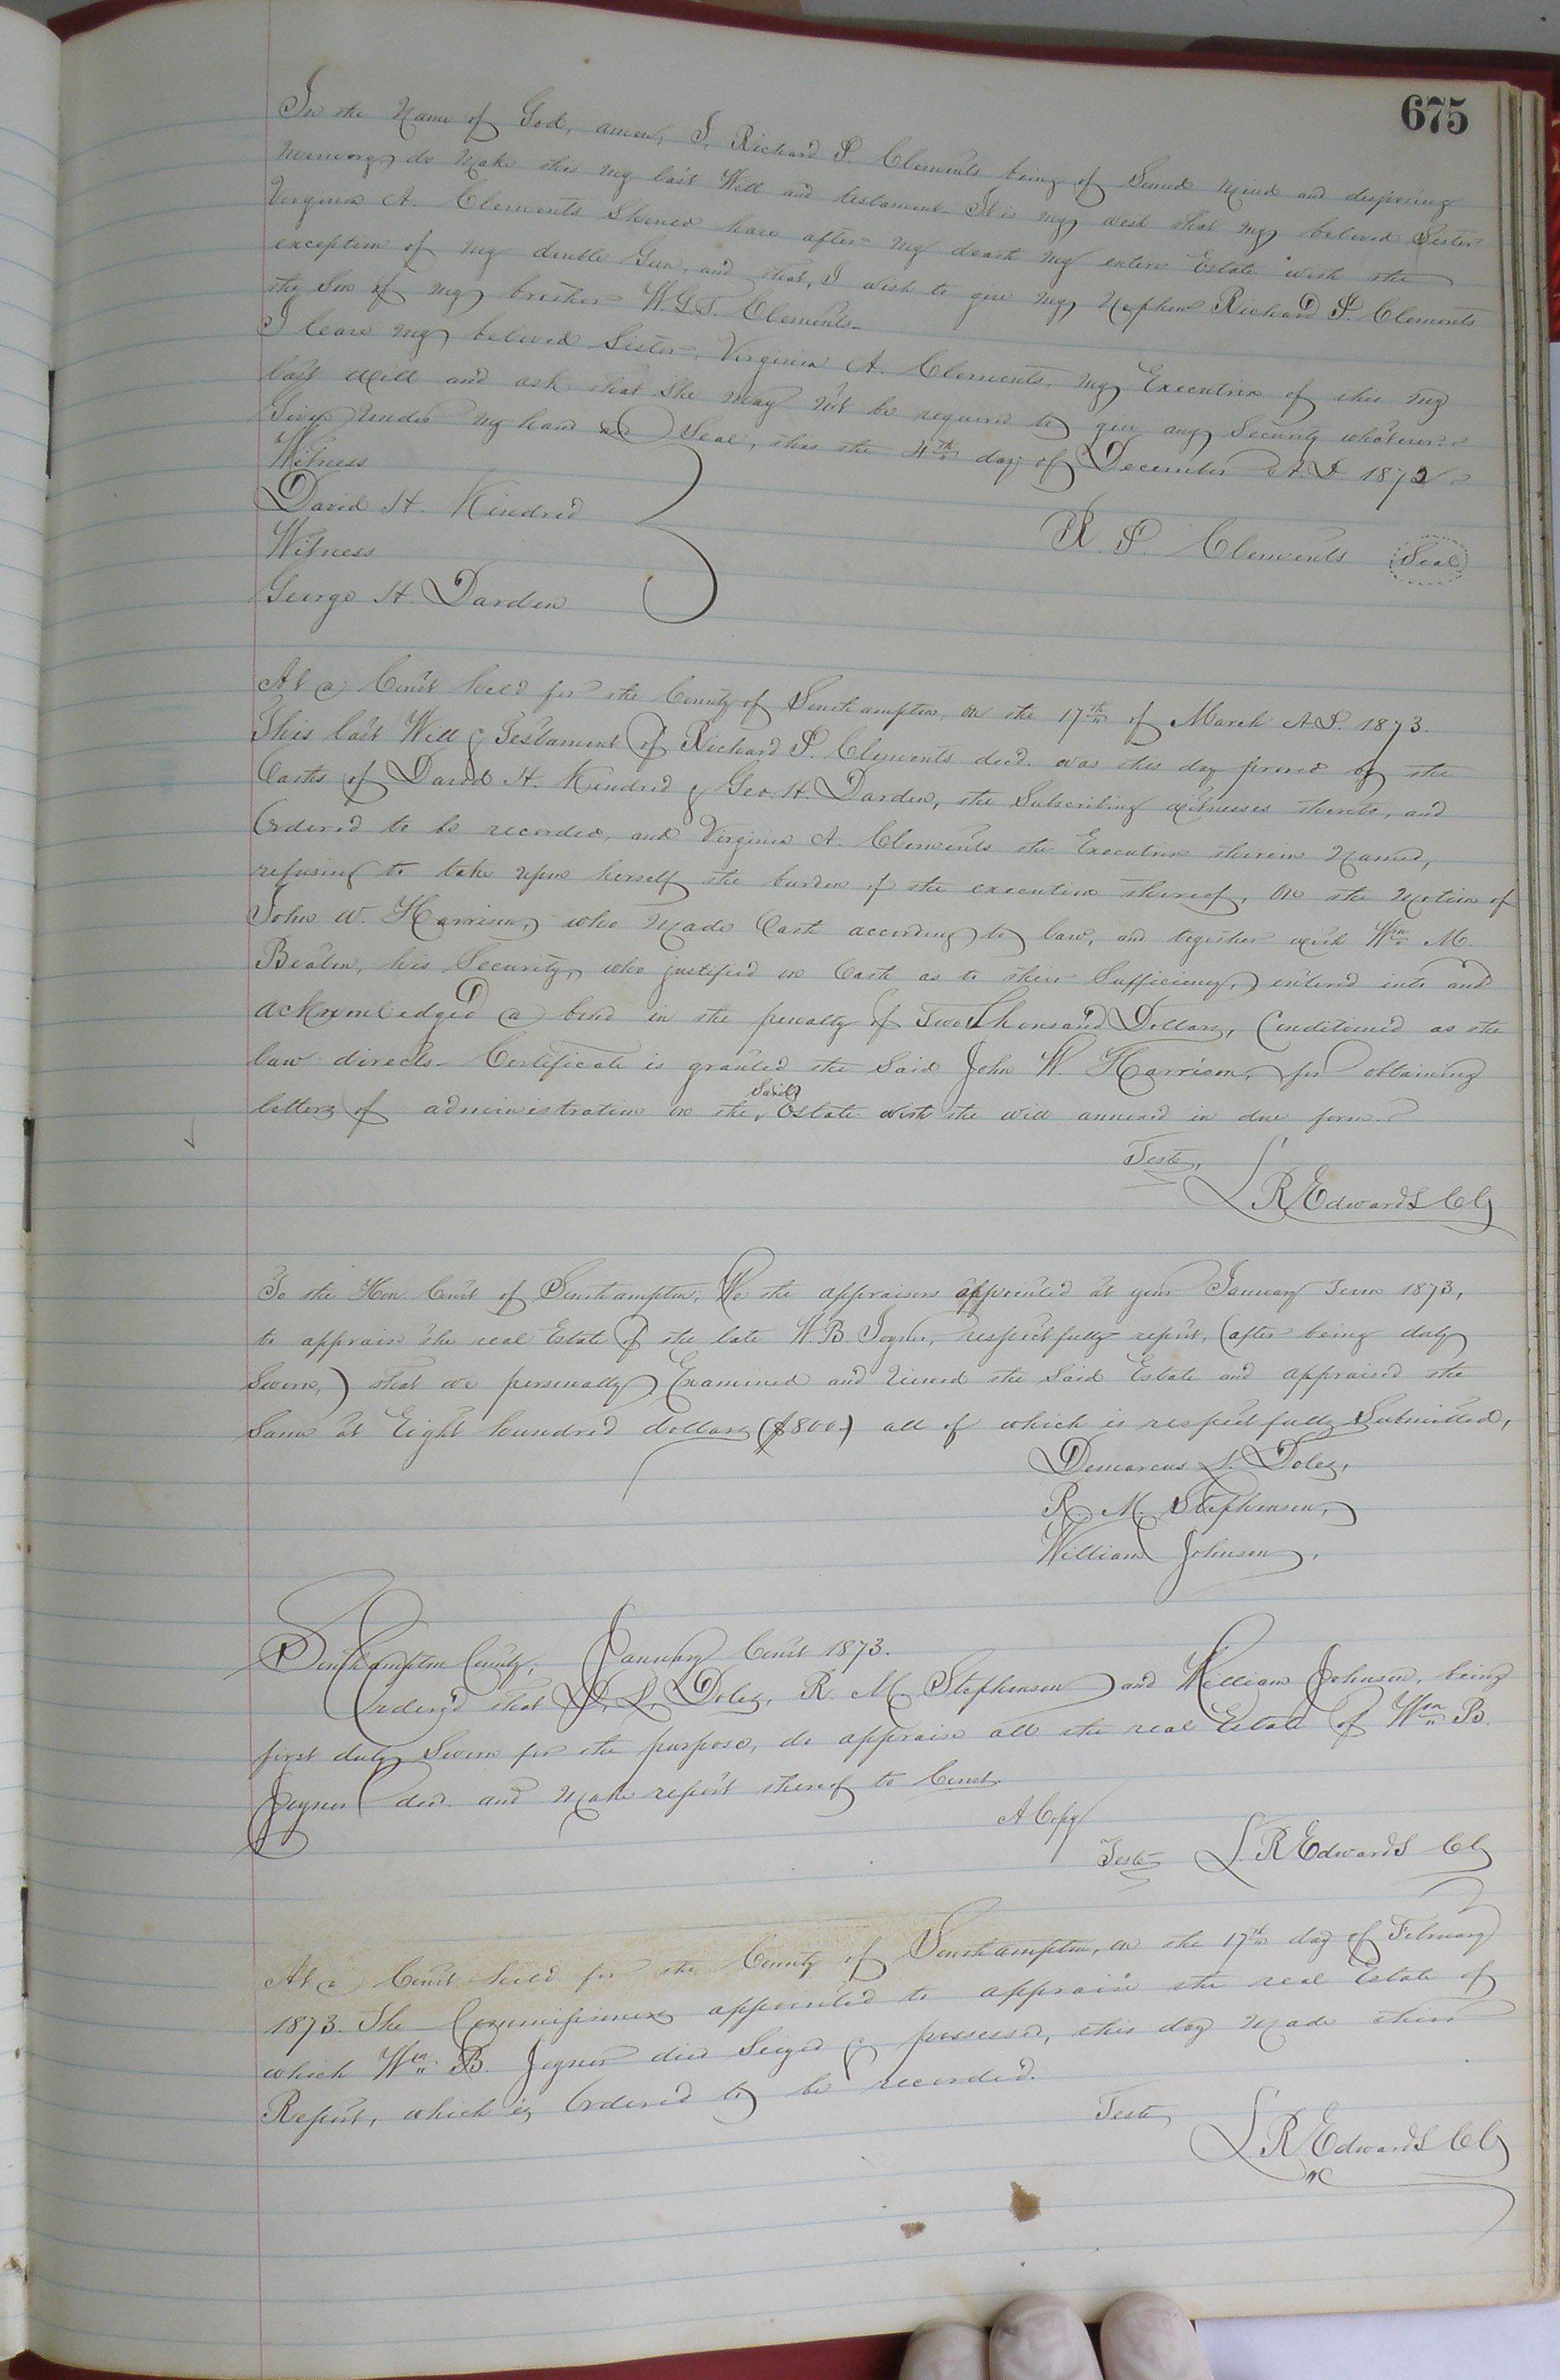 675
In the Name of God, amen, I, Richard P. Clements being of Sound Mind and disposing
Memory, do Make this My last Will and testament. It is my wish that my beloved Sister
Virginia A. Clements Should have after My death My entire Estate with the
exception of My double Gun, and that, I wish to give My Nephew Richard P. Clements
the Son of my brother W.G.T. Clements.
I leave my beloved Sister, Virginia A. Clements, my Executrix of this my
last Will and ask that She may not be required to give any Security whatever.
Given Under My hand and Seal, this the 4th day of December A.D. 1872
Witness
David H. Kindred
Witness
R. P. Clements Seal
George H. Darden
At a Court held for the County of Southampton, on the 17th of March A.D. 1873.
This last Will & Testament of Richard P. Clements decd. was this day proved by the
Oaths of David H. Kindred & Geo. H. Darden, the Subscribing witnesses thereto, and
Ordered to be recorded, and Virginia A. Clements the Executrix therein Named,
refusing to take upon herself the burden of the execution thereof, On the Motion of
John W. Harrison, who Made Oath according to law, and together with Wm M.
Beaton, his Security, who justified on Oath as to their Sufficiency, entered into and
acknowledged a bond in the penalty of Two Thousand Dollars, Conditioned as the
law directs. Certificate is granted the Said John W. Harrison, for obtaining
letters of administration on the Said Estate with the will annexed in due form.
Teste,
L R Edwards Clk
To the Hon Court of Southampton; We the appraisers appointed at your January Term 1873,
to appraise the real Estate of the late W. B. Joyner, respectfully report, (after being duly
Sworn,) that we personally Examined and Viewed the Said Estate and appraised the
Same at Eight hundred dollars ($800.) all of which is respectfully Submitted,
Demarcus L. Doles,
R. M. Stephenson,
William Johnson,
Southampton County; January Court 1873.
Ordered that D. L. Doles, R. M. Stephenson and William Johnson, being
first duly Sworn for the purpose, do appraise all the real Estate of Wm B.
Joyner decd. and Make report thereof to Court.
A Copy
Teste L. R Edwards Clk
At a Court held for the County of Southampton, on the 17th day of February
1873. The Commissioners appointed to appraise the real Estate of
which Wm B. Joyner died Seized & possessed, this day Made their
Report, which is Ordered to be recorded.
Teste
L. R Edwards Clk